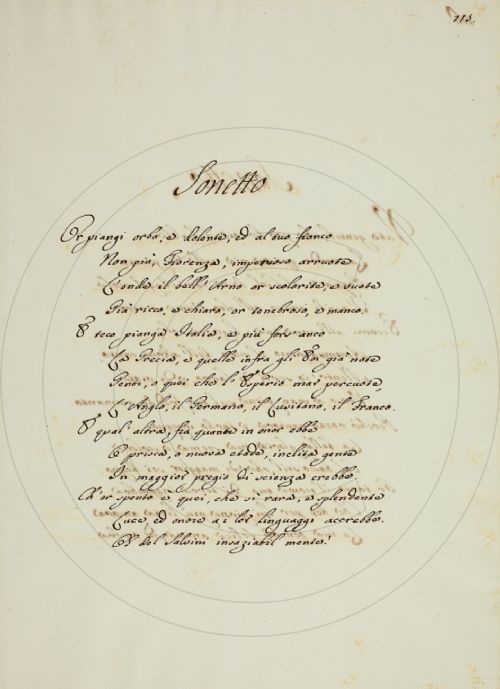 115.
Sonetto
Or piangi orba, e dolente, ed al tuo fianco
Non più, Fiorenza, impetuoso arruote
L'onde il bell' Arno or scolorite, e vuote
Già ricco, e chiaro, or tenebroso, e manco.
E teco pianga Italia, e più fors' anco
La Grecia, e quelle infra gli Eoi già note
Genti, e quei che l' Esperio mar percuote,
L'Anglo, il Germano, il Lusitano, il Franco.
E qual altra fia, quante in onor ebbe
O prisca, o nuova etade, inclita gente
In maggior pregio di scienza crebbe.
Ch'or spento è quei, che sì rara, e splendente
Luce, ed onore a i lor linguaggi accrebbe.
O del Salvini insaziabil mente!